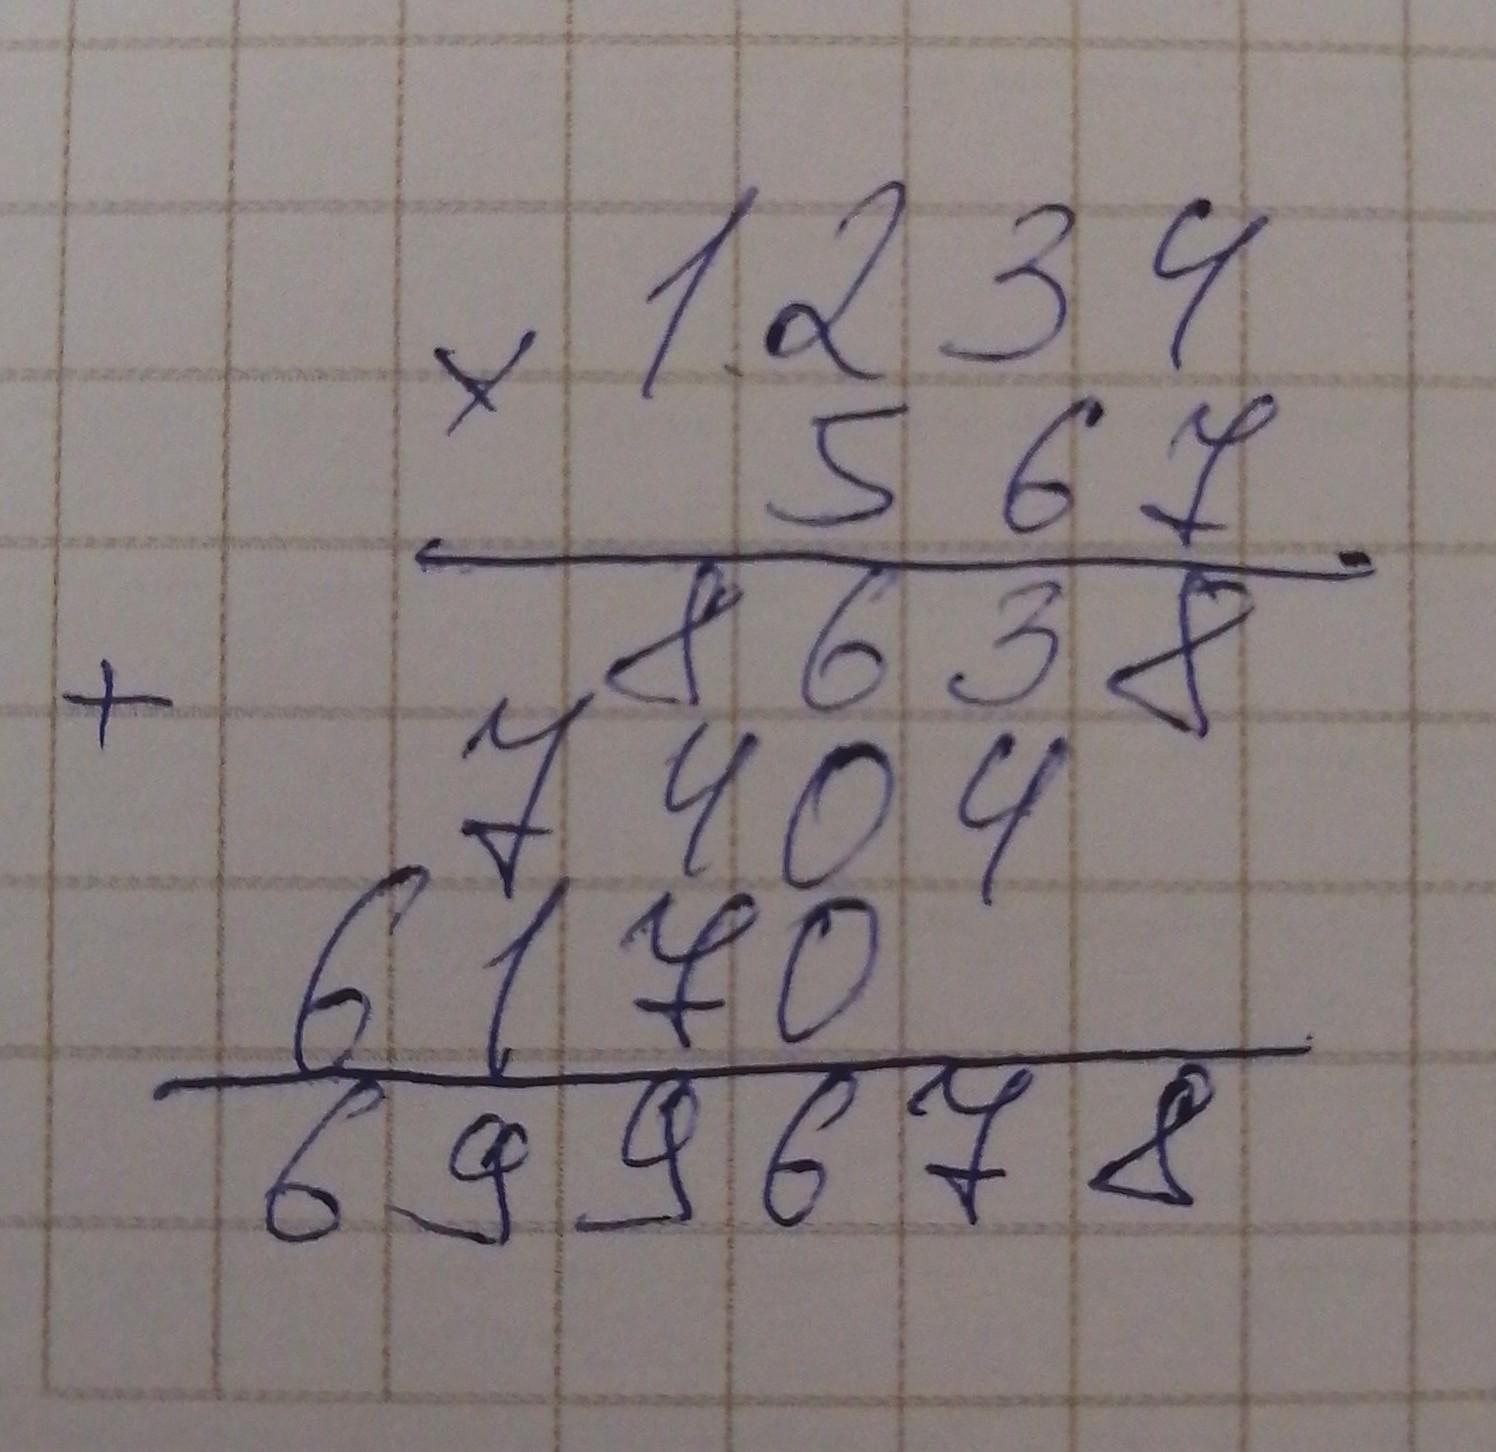 × 1234
567
8638
+ 7404
6170
699678